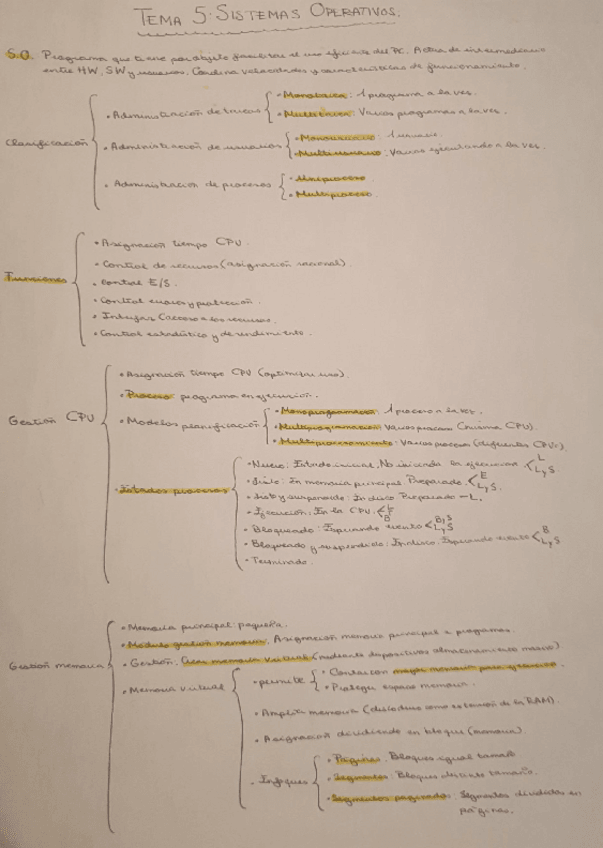 TEMA 5: SISTEMAS OPERATIVOS.
S.O. Programa que tiene por objeto facilitar el uso eficiente del PC. Actúa de intermediario
entre HW, SW y usuarios. Coordina velocidades y características de funcionamiento.
Clasificación
• Administración de tareas
• Monotarea: 1 programa a la vez.
• Multitarea: Varios programas a la vez.
• Administración de usuarios
• Monousuario: 1 usuario.
• Multiusuario: Varios ejecutando a la vez.
• Administración de procesos
• Uniproceso
• Multiproceso
Funciones
• Asignación tiempo CPU.
• Control de recursos (asignación racional).
• Control E/S.
• Control errores y protección.
• Interfaz (acceso a los recursos.
• Control estadístico y de rendimiento.
Gestión CPU
• Asignación tiempo CPU (optimizar uso).
• Proceso: programa en ejecución.
• Modelos planificación
• Monoprogramación: 1 proceso a la vez.
• Multiprogramación: Varios procesos (misma CPU).
• Multiprocesamiento: Varios procesos (diferentes CPUs).
• Estados procesos
• Nuevo: Estado inicial, No iniciada la ejecución L L, S
• Listo: En memoria principal. Preparado. E L, S.
• Listo y suspendido: En disco. Preparado – L.
• Ejecución: En la CPU.
• Bloqueado: Esperando evento B, S L, S
• Bloqueado y suspendido: En disco. Esperando evento B L, S
• Terminado.
Gestión memoria
• Memoria principal: pequeña.
• Módulo gestión memoria: Asignación memoria principal a programas.
• Gestión: Crea memoria virtual (mediante dispositivos almacenamiento masivo).
• Memoria virtual
• permite
• Contar con mayor memoria para ejecución.
• Proteger espacio memoria.
• Amplía memoria (disco duro como extensión de la RAM).
• Asignación dividiendo en bloques (memoria).
• Enfoques
• Páginas: Bloques igual tamaño
• Segmentos: Bloques distinto tamaño.
• Segmentos paginados: Segmentos divididos en
páginas.